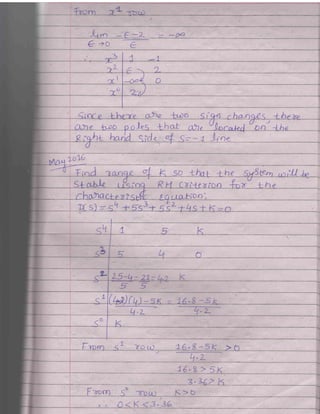 From x¹ row
lim -ε-2 = -∞
ε→0 ε
∴ x³ 1 -1
x² ε 2
x¹ -∞ 0
x⁰ 2
Since there are two sign changes, there
are two poles that are located on the
Right hand side of S=-1 line
May 2016
Find range of K so that the system will be
stable using RH Criterion for the
characteristic equation:
F(s) = s⁴ + 5s³ + 5s² + 4s + K = 0
S⁴ 1 5 K
S³ 5 4 0
S² 25-4 = 21 = 4.2 K
5 5
S¹ (4.2)(4)-5K = 16.8-5K
4.2 4.2
S⁰ K
From s¹ row, 16.8-5K > 0
4.2
16.8 > 5K
3.36 > K
From s⁰ row K>0
∴ 0<K<3.36